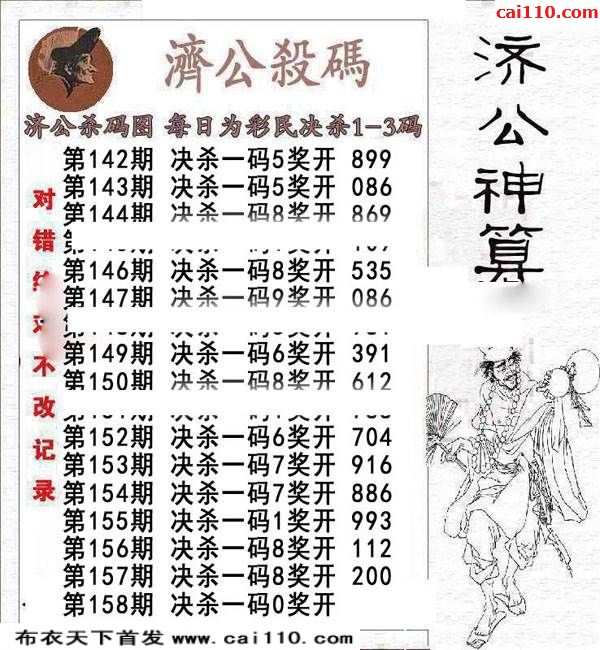 cai110.com
濟公殺碼
济公杀码图 每日为彩民决杀1-3码
第142期 决杀一码5奖开 899
第143期 决杀一码5奖开 086
第144期 决杀一码8奖开 869
第146期 决杀一码8奖开 535
第147期 决杀一码9奖开 086
第149期 决杀一码6奖开 391
第150期 决杀一码8奖开 612
第152期 决杀一码6奖开 704
第153期 决杀一码7奖开 916
第154期 决杀一码7奖开 886
第155期 决杀一码1奖开 993
第156期 决杀一码8奖开 112
第157期 决杀一码8奖开 200
第158期 决杀一码0奖开
对错
不改记录
济公神算
布衣天下首发 www.cai110.com